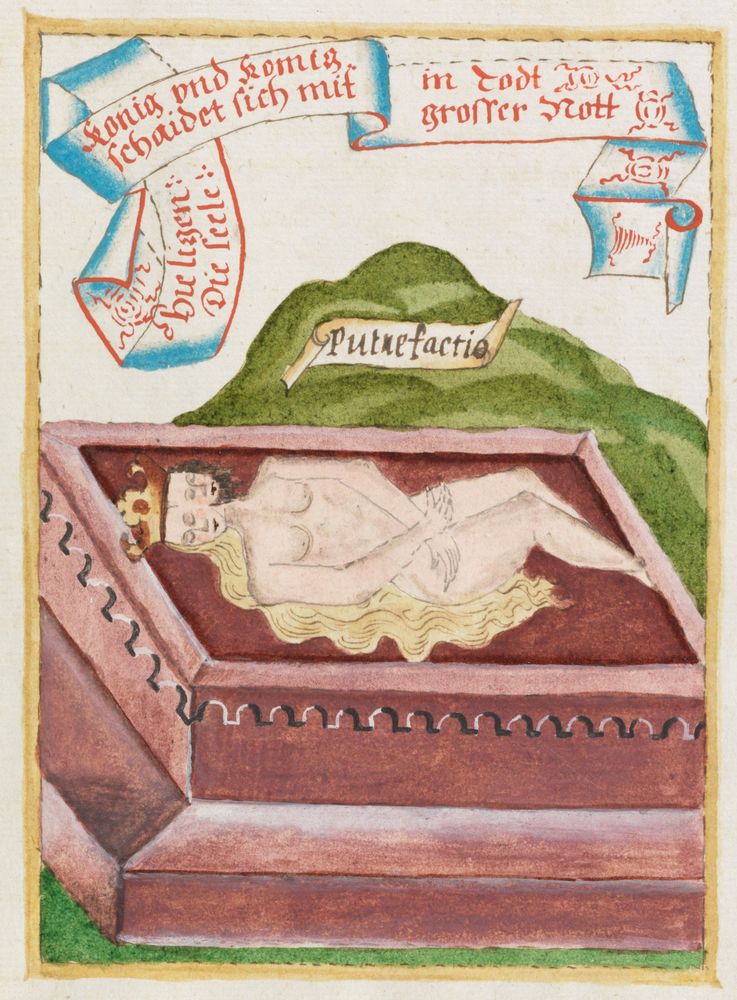 Hie ligen
Die seele
König vnd Konig
schaidet sich mit
in Todt
grosser Nott
Putrefactio